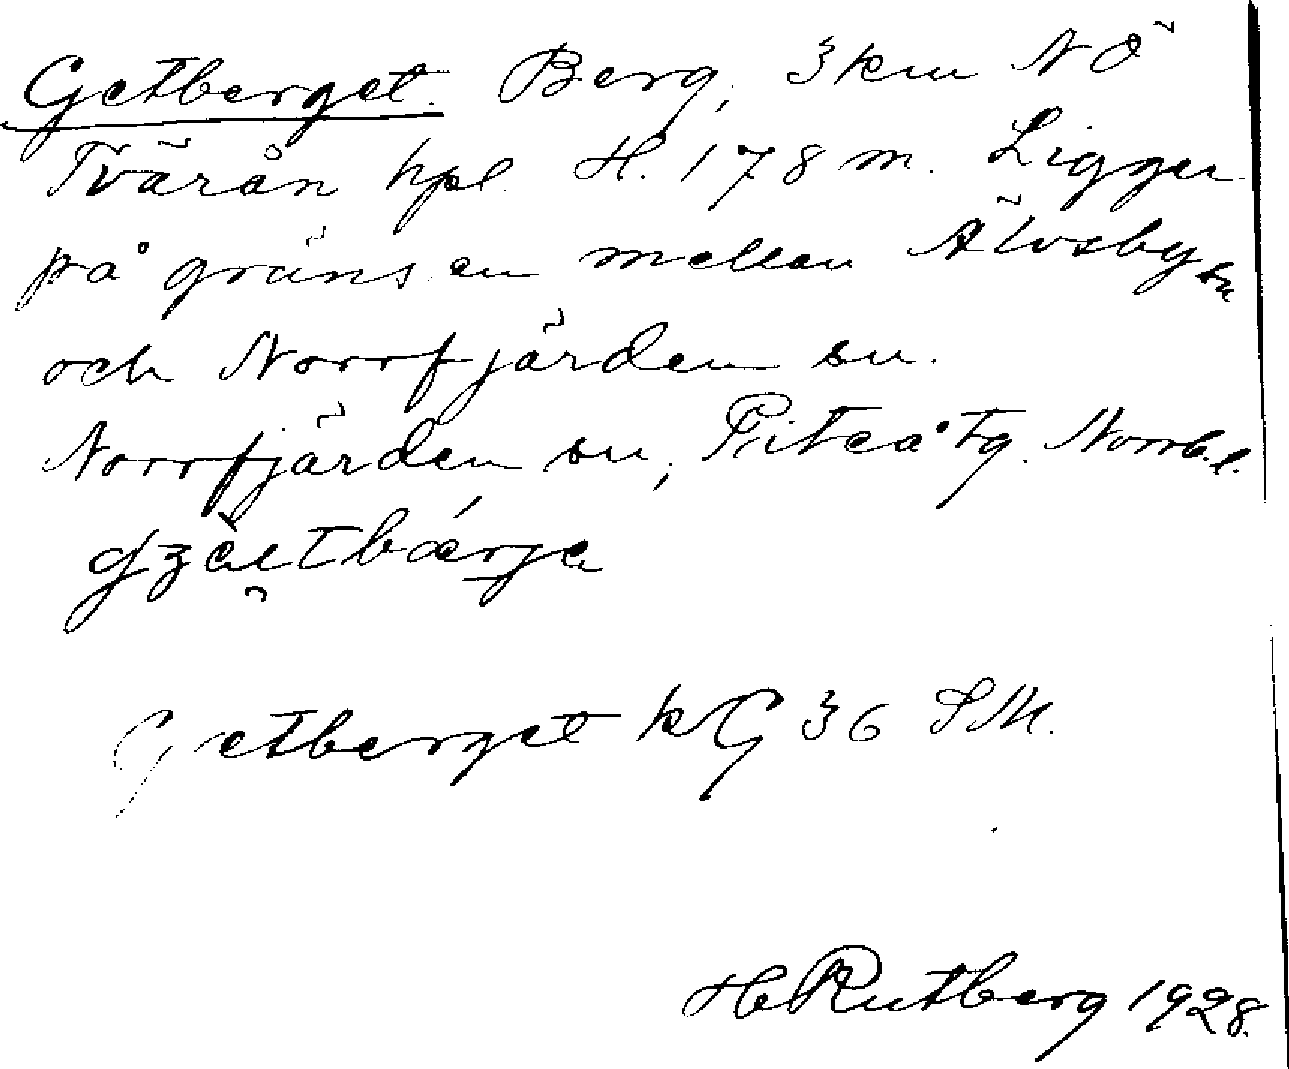 Getberget. Berg, 3 km NÖ
Tvärån hpl. H. 178 m. Ligger
på gränsen mellan Älvsby sn
och Norrfjärden sn.
Norrfjärden sn, Piteå tg. Norrb. l.
Getberget kG 36 SM.
H Rutberg 1928.